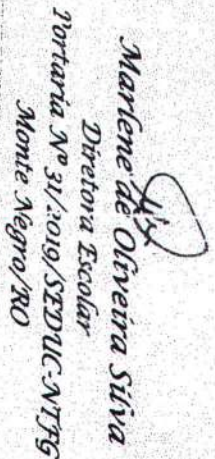 Marlene de Oliveira Silva
Diretora Escolar
Portaria Nº 31/2019/SEDUC-NTFG
Monte Negro/RO